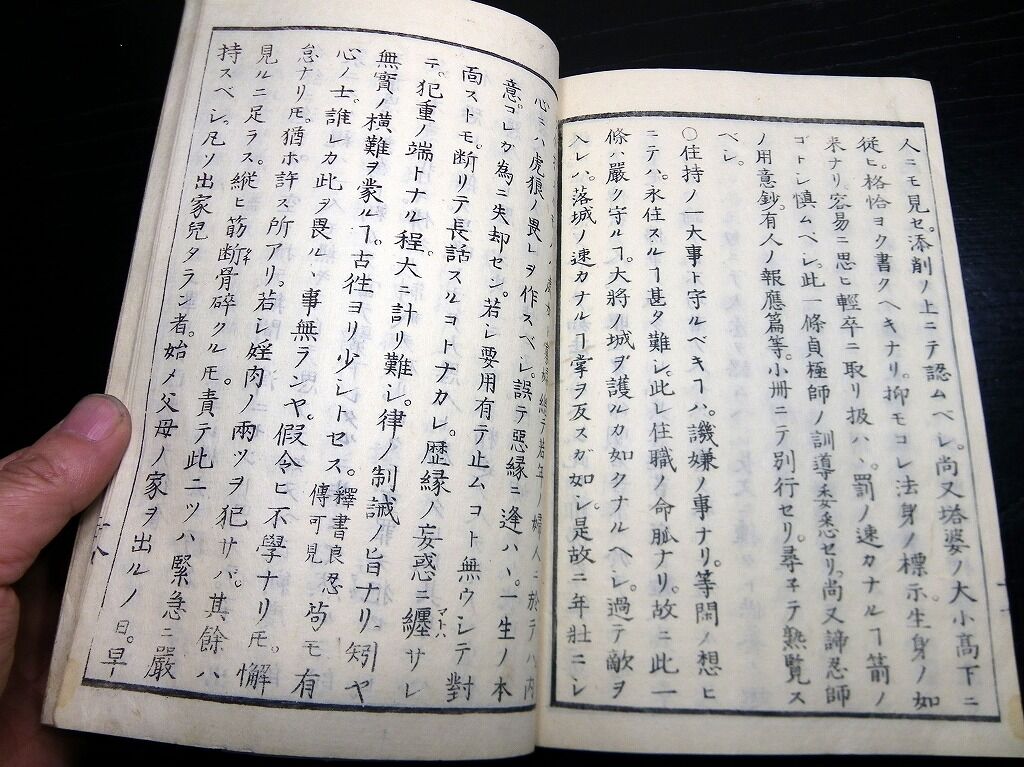 人ニモ見セ。添削ノ上ニテ認ムベシ。尚又塔婆ノ大小高下ニ
従ヒ。格恰ヲク書クヘキナリ。抑モコレ法身ノ標示。生身ノ如
来ナリ容易ニ思ヒ輕卒ニ取リ扱ハヽ。罰ノ速カナルヿ箭ノ
ゴトシ慎ムベシ。此一條貞極師ノ訓導委悉セリ。尚又諦忍師
ノ用意鈔。有人ノ報應篇等。小冊ニテ別行セリ。尋子テ熟覧ス
ベシ。
〇住持ノ一大事ト守ルベキヿハ。譏嫌ノ事ナリ。等閑ノ想ヒ
ニテハ。永住スルヿ甚タ難シ。此レ住職ノ命脈ナリ。故ニ此一
條ハ嚴ク守ルヿ。大将ノ城ヲ護ルカ如クナルヘシ。過テ敵ヲ
入レハ。落城ノ速カナルヿ掌ヲ反スガ如シ。是故ニ年壮ニシ
總テ若年ノ婦人ニ於テハ内
心ニハ虎狼ノ畏レヲ作スベシ。誤テ悪縁ニ逢ハヽ。一生ノ本
意。コレガ為ニ失却セン。若シ要用有テ止ムコト無ウシテ對
面ストモ。断リテ長話スルコトナカレ。歴縁ノ妄惑ニ纏マトハサレ
テ。犯重ノ端トナル程。大ニ計リ難シ。律ノ制誡ノ旨ナリ。矧ヤ
無實ノ横難ヲ蒙ルヿ。古徃ヨリ少シトセス。釋書良忍傳可見苟モ有
心ノ士。誰レカ此ヲ畏ルヽ事無ランヤ。假令ヒ不學ナリ𪜈。懈
怠ナリ𪜈。猶ホ許ス所アリ。若シ婬肉ノ兩ツヲ犯サバ。其餘ハ
見ルニ足ラス。縦ヒ筋断骨碎クル𪜈責テ此二ツハ緊急ニ嚴
持スベシ。凡ソ出家兒タラン者。始メ父母ノ家ヲ出ルノ日。早